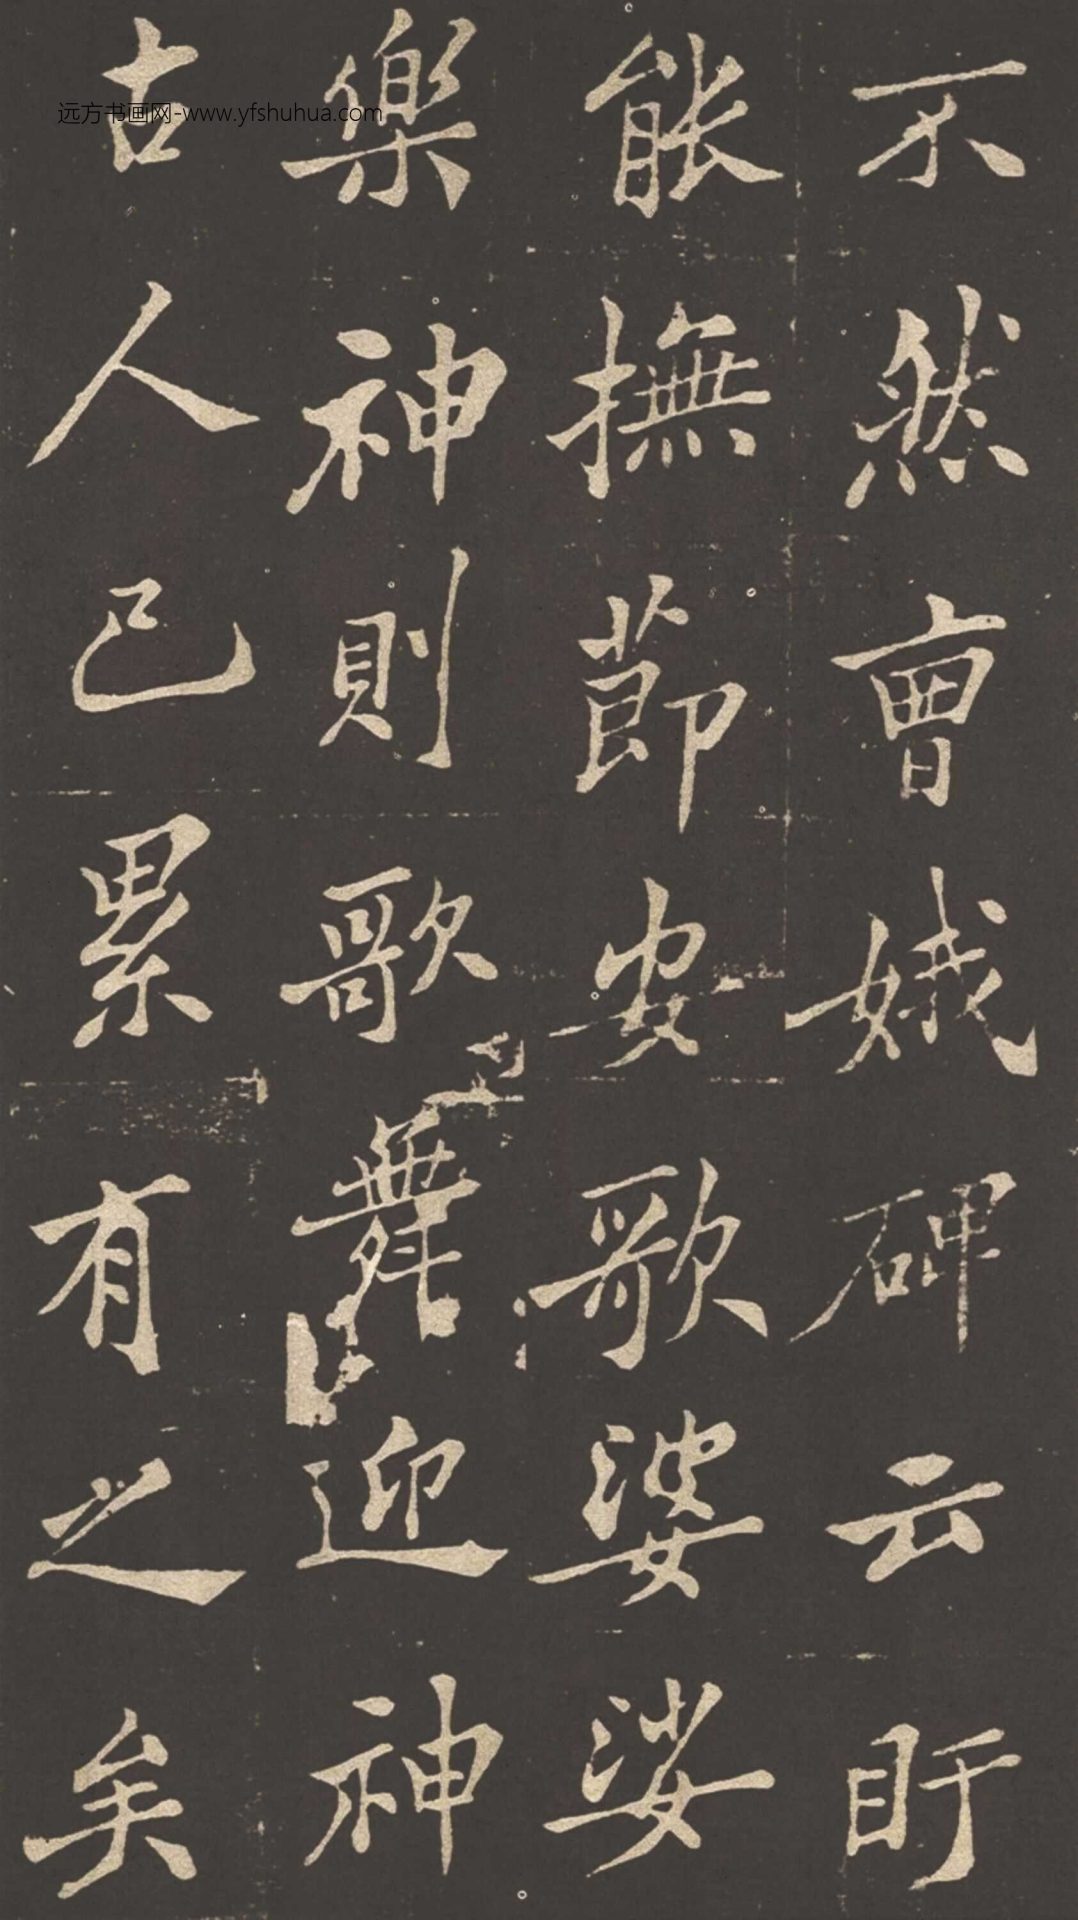 不然曹娥碑云盱
能撫節安歌婆娑
樂神則歌舞迎神
古人已累有之矣
远方书画网-www.yfshuhua.com